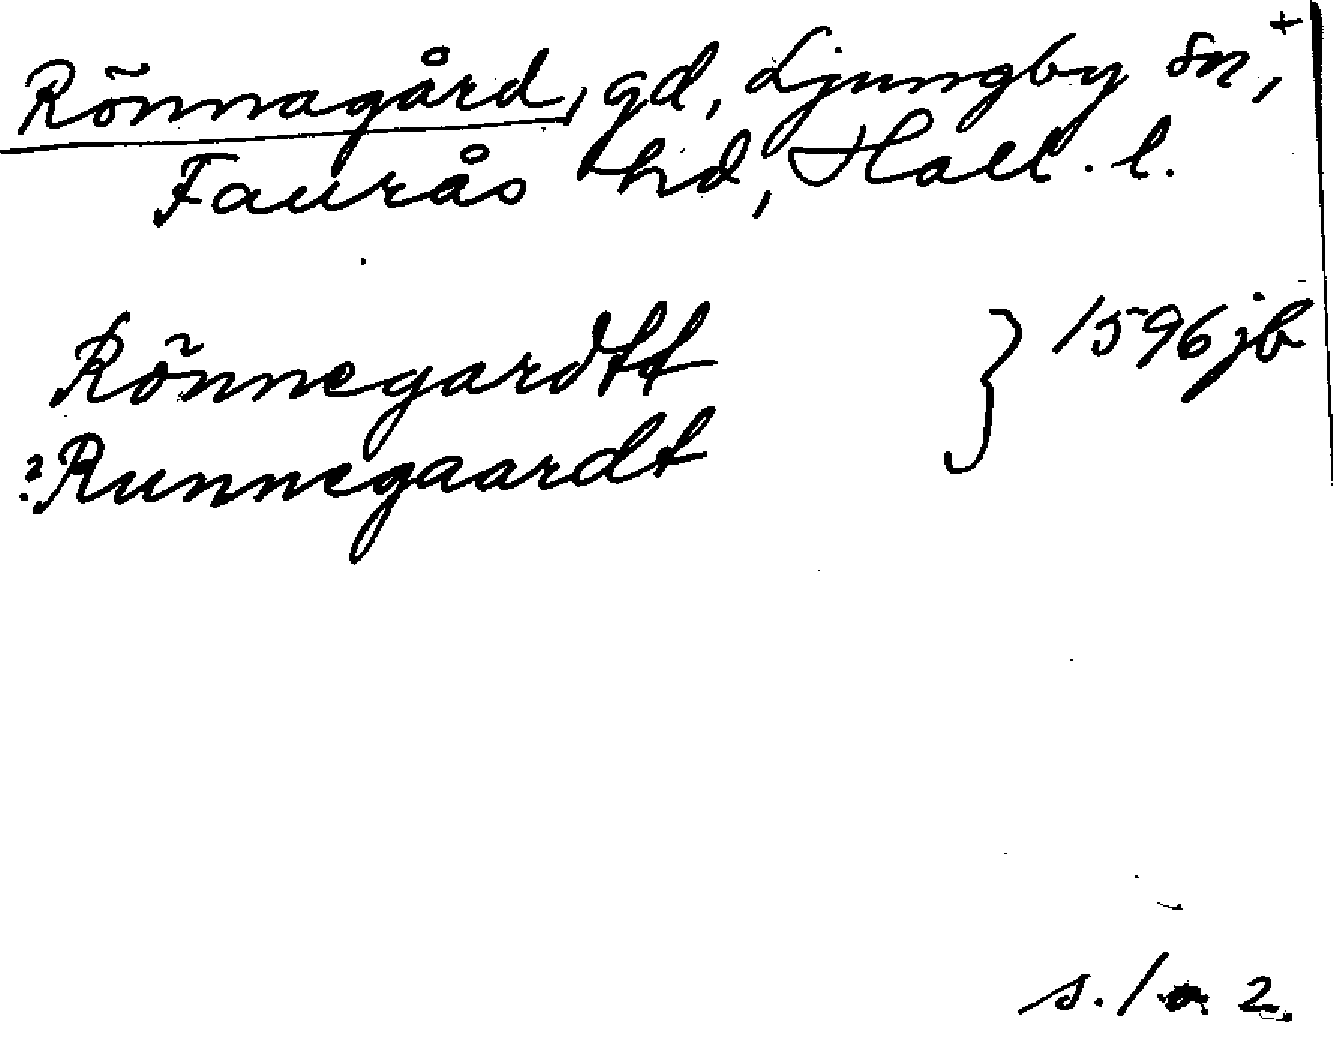 Rönnagård, gd, Ljungby sn, +
Faurås hd, Hall. l.
Rönnegardtt } 1596 jb
?: Runnegaardt
s. 1 2.